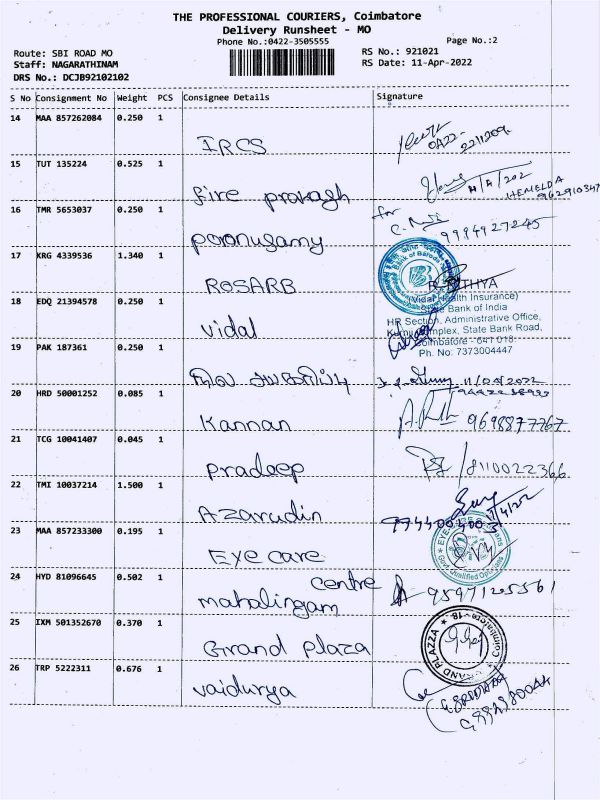 THE PROFESSIONAL COURIERS, Coimbatore
Delivery Runsheet - MO
Phone No.:0422-3505555
Page No.:2
Route: SBI ROAD MO
RS No.: 921021
Staff: NAGARATHINAM
RS Date: 11-Apr-2022
DRS No.: DCJB92102102
S No Consignment No Weight PCS Consignee Details Signature
14 MAA 857262084 0.250 1
IRCS
15 TUT 135224 0.525 1
fire prakash
11/4/202
HEMELDA
962910347
16 TMR 5653037 0.250 1
for
ponnusamy
9994927245
17 KRG 4339536 1.340 1
ROSARB
Bank of Baroda
18 EDQ 21394578 0.250 1
vidal
(Vidal Health Insurance)
State Bank of India
HR Section, Administrative Office,
Complex, State Bank Road,
Coimbatore - 641 018.
Ph. No: 7373004447
19 PAK 187361 0.250 1
11/04/2022
20 HRD 50001252 0.085 1
Kannan
9698877767
21 TCG 10041407 0.045 1
pradeep
8110022366
22 TMI 10037214 1.500 1
Azarudin
11/4/22
23 MAA 857233300 0.195 1
Eye care
centre
Govt Qualified Opticians
24 HYD 81096645 0.502 1
mahalingam
9597125561
25 IXM 501352670 0.370 1
Grand plaza
GRAND PLAZZA
Coimbatore-18
26 TRP 5222311 0.676 1
vaidurya